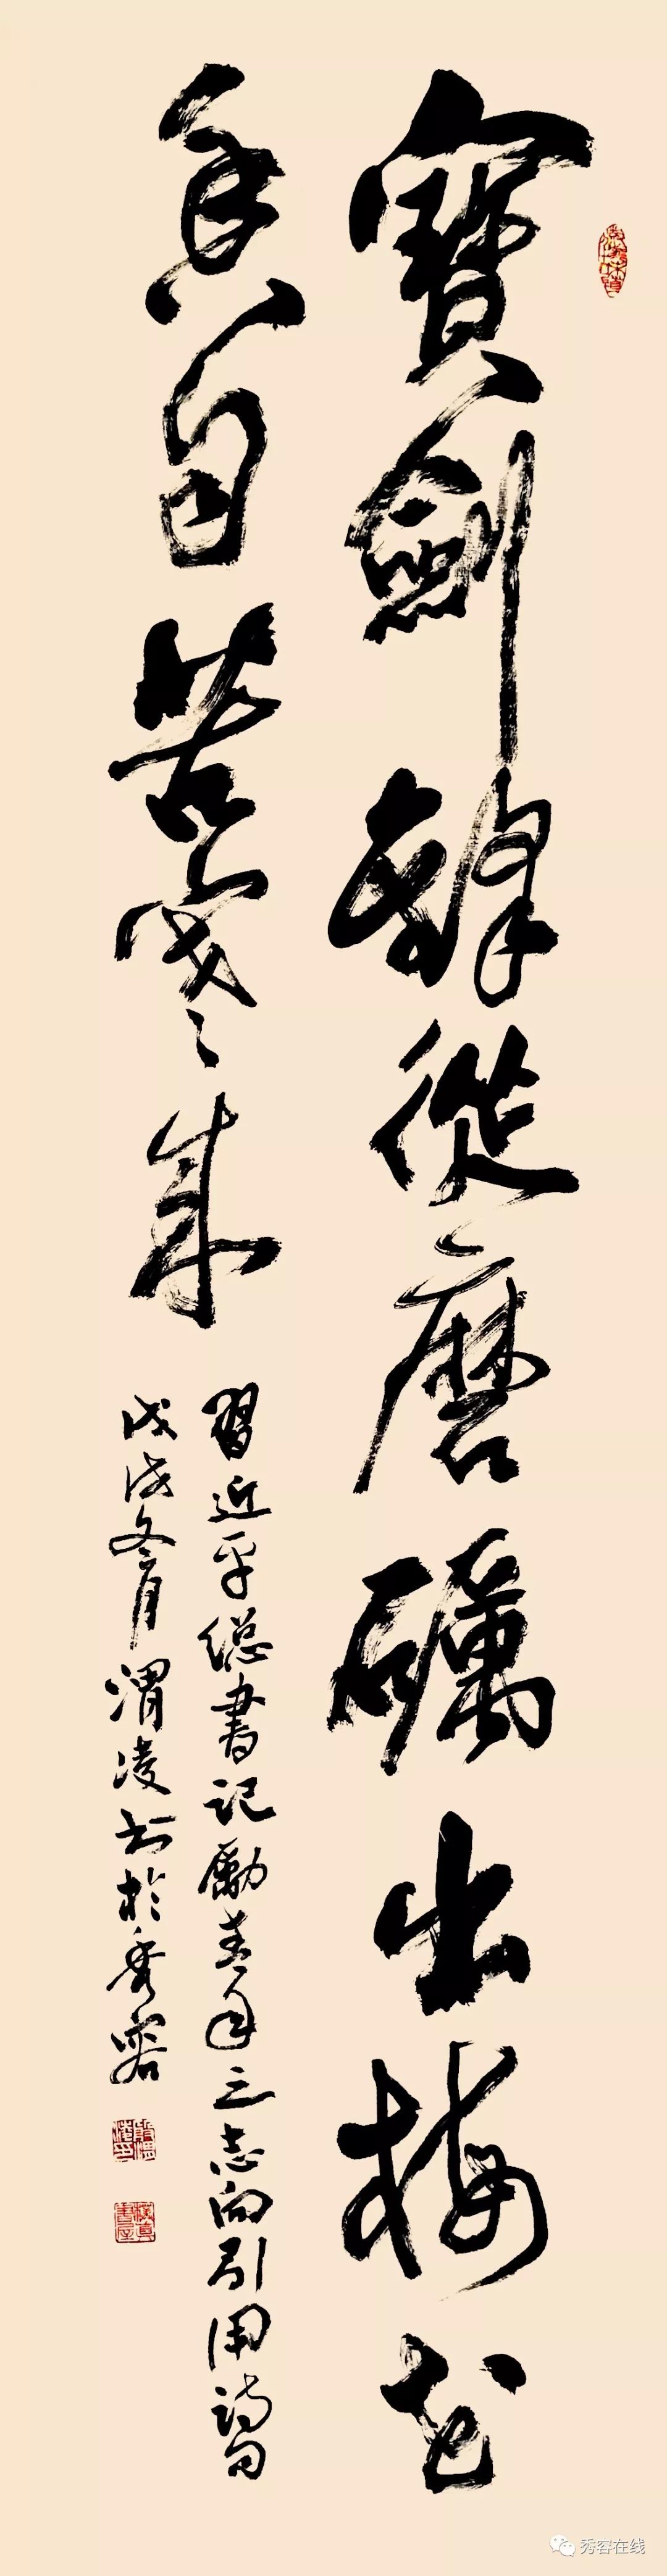 寶劍鋒從磨礪出梅花
香自苦寒來
習近平總書記勵青年立志向引用詩句
戊戌冬月渭凌书於秀容
秀容在线